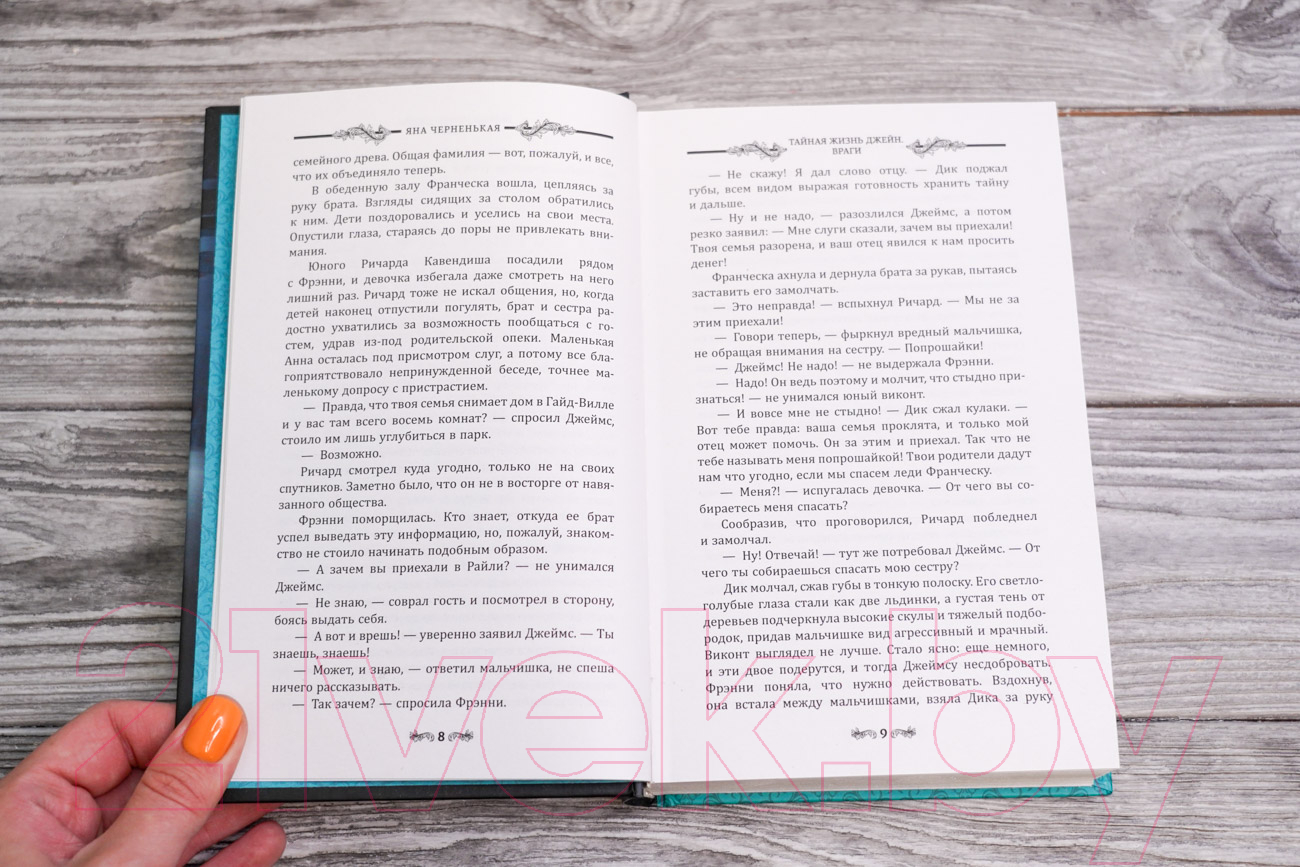 ЯНА ЧЕРНЕНЬКАЯ
семейного древа. Общая фамилия — вот, пожалуй, и все,
что их объединяло теперь.
В обеденную залу Франческа вошла, цепляясь за
руку брата. Взгляды сидящих за столом обратились
к ним. Дети поздоровались и уселись на свои места.
Опустили глаза, стараясь до поры не привлекать вни-
мания.
Юного Ричарда Кавендиша посадили рядом
с Фрэнни, и девочка избегала даже смотреть на него
лишний раз. Ричард тоже не искал общения, но, когда
детей наконец отпустили погулять, брат и сестра ра-
достно ухватились за возможность пообщаться с го-
стем, удрав из-под родительской опеки. Маленькая
Анна осталась под присмотром слуг, а потому все бла-
гоприятствовало непринужденной беседе, точнее ма-
ленькому допросу с пристрастием.
— Правда, что твоя семья снимает дом в Гайд-Вилле
и у вас там всего восемь комнат? — спросил Джеймс,
стоило им лишь углубиться в парк.
— Возможно.
Ричард смотрел куда угодно, только не на своих
спутников. Заметно было, что он не в восторге от навя-
занного общества.
Фрэнни поморщилась. Кто знает, откуда ее брат
успел выведать эту информацию, но, пожалуй, знаком-
ство не стоило начинать подобным образом.
— А зачем вы приехали в Райли? — не унимался
Джеймс.
— Не знаю, — соврал гость и посмотрел в сторону,
боясь выдать себя.
— А вот и врешь! — уверенно заявил Джеймс. — Ты
знаешь, знаешь!
— Может, и знаю, — ответил мальчишка, не спеша
ничего рассказывать.
— Так зачем? — спросила Фрэнни.
8
ТАЙНАЯ ЖИЗНЬ ДЖЕЙН.
ВРАГИ
— Не скажу! Я дал слово отцу. — Дик поджал
губы, всем видом выражая готовность хранить тайну
и дальше.
— Ну и не надо, — разозлился Джеймс, а потом
резко заявил: — Мне слуги сказали, зачем вы приехали!
Твоя семья разорена, и ваш отец явился к нам просить
денег!
Франческа ахнула и дернула брата за рукав, пытаясь
заставить его замолчать.
— Это неправда! — вспыхнул Ричард. — Мы не за
этим приехали!
— Говори теперь, — фыркнул вредный мальчишка,
не обращая внимания на сестру. — Попрошайки!
— Джеймс! Не надо! — не выдержала Фрэнни.
— Надо! Он ведь поэтому и молчит, что стыдно при-
знаться! — не унимался юный виконт.
— И вовсе мне не стыдно! — Дик сжал кулаки. —
Вот тебе правда: ваша семья проклята, и только мой
отец может помочь. Он за этим и приехал. Так что не
тебе называть меня попрошайкой! Твои родители дадут
нам что угодно, если мы спасем леди Франческу.
— Меня?! — испугалась девочка. — От чего вы со-
бираетесь меня спасать?
Сообразив, что проговорился, Ричард побледнел
и замолчал.
— Ну! Отвечай! — тут же потребовал Джеймс. — От
чего ты собираешься спасать мою сестру?
Дик молчал, сжав губы в тонкую полоску. Его светло-
голубые глаза стали как две льдинки, а густая тень от
деревьев подчеркнула высокие скулы и тяжелый подбо-
родок, придав мальчишке вид агрессивный и мрачный.
Виконт выглядел не лучше. Стало ясно: еще немного,
и эти двое подерутся, и тогда Джеймсу несдобровать.
Фрэнни поняла, что нужно действовать. Вздохнув,
она встала между мальчишками, взяла Дика за руку
9
21vek.by